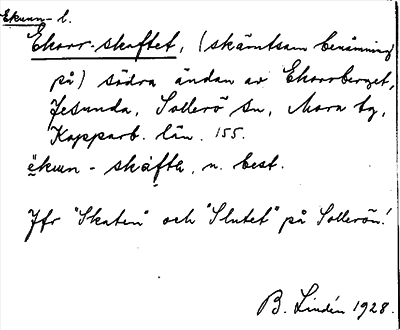 Ekurn- l.
Ekorr-skaftet, (skämtsam benämning
på) södra ändan av Ekorrberget,
Jesunda, Sollerö sn, Mora tg,
Kopparb. län. 155.
ḙkun - skáfta, n. best.
Jfr "Skaten" och "Slutet" på Sollerön!
B. Lindén 1928.